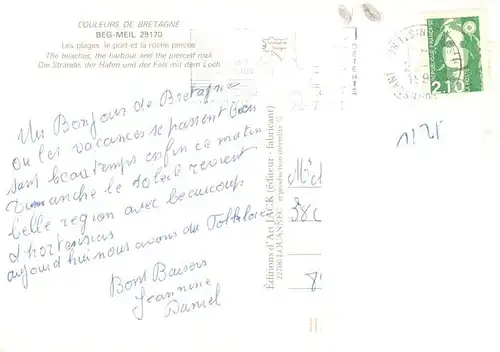 COULEURS DE BRETAGNE
BEG-MEIL 29170
Les plages, le port et la roche percée
The beaches, the harbour and the pierced rock
Die Strande, der Hafen und der Fels mit dem Loch
Un Bonjour de Bretagne
ou les vacances se passent bien
sans beau temps enfin ce matin
Dimanche le soleil revient
belle region avec beaucoup
d'hortensias
aujourd'hui nous avons du Folklore
Bons Baisers
Jeannine
Daniel
Editions d'Art JACK (éditeur - fabricant)
22700 LOUANNEC © reproduction interdite
2,10